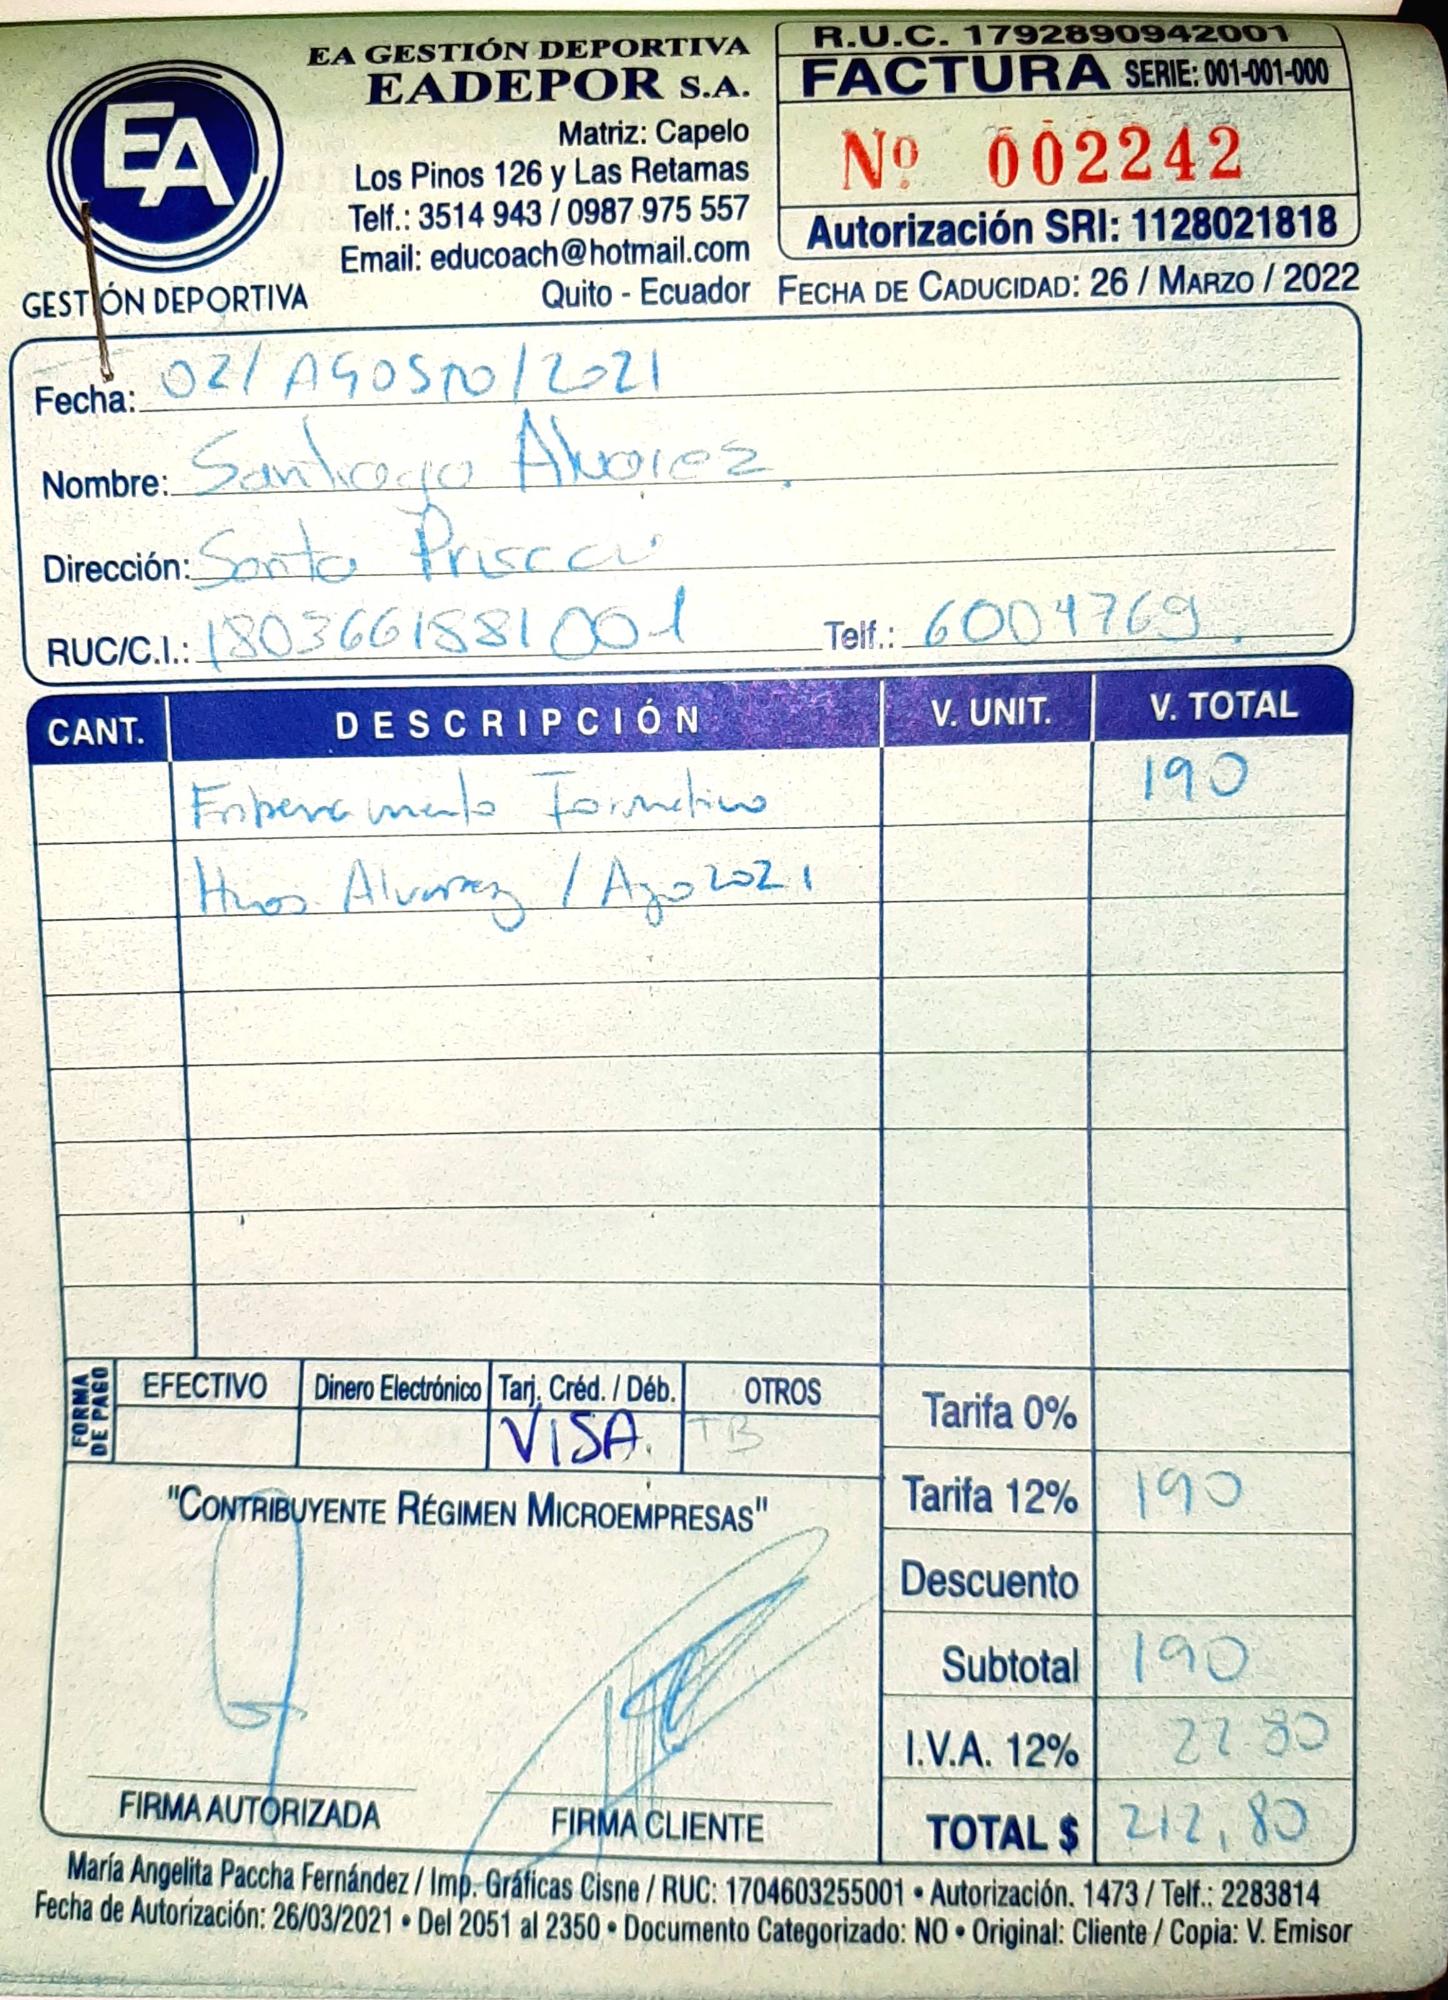 EA
GESTIÓN DEPORTIVA
EA GESTIÓN DEPORTIVA
EADEPOR S.A.
Matriz: Capelo
Los Pinos 126 y Las Retamas
Telf.: 3514 943 / 0987 975 557
Email: educoach@hotmail.com
Quito - Ecuador
R.U.C. 1792890942001
FACTURA SERIE: 001-001-000
Nº 002242
Autorización SRI: 1128021818
FECHA DE CADUCIDAD: 26 / MARZO / 2022
Fecha: 02/AGOSTO/2021
Nombre: Santiago Alvarez
Dirección: Santa Prisca
RUC/C.I.: 1803661881001 Telf.: 6004769
CANT. DESCRIPCIÓN V. UNIT. V. TOTAL
Entrenamiento Formativo 190
Hnos. Alvarez / Ago 2021
FORMA DE PAGO
EFECTIVO Dinero Electrónico Tarj. Créd. / Déb. OTROS
VISA. TB
"CONTRIBUYENTE RÉGIMEN MICROEMPRESAS"
FIRMA AUTORIZADA FIRMA CLIENTE
Tarifa 0%
Tarifa 12% 190
Descuento
Subtotal 190
I.V.A. 12% 22.80
TOTAL $ 212,80
María Angelita Paccha Fernández / Imp. Gráficas Cisne / RUC: 1704603255001 • Autorización. 1473 / Telf.: 2283814
Fecha de Autorización: 26/03/2021 • Del 2051 al 2350 • Documento Categorizado: NO • Original: Cliente / Copia: V. Emisor